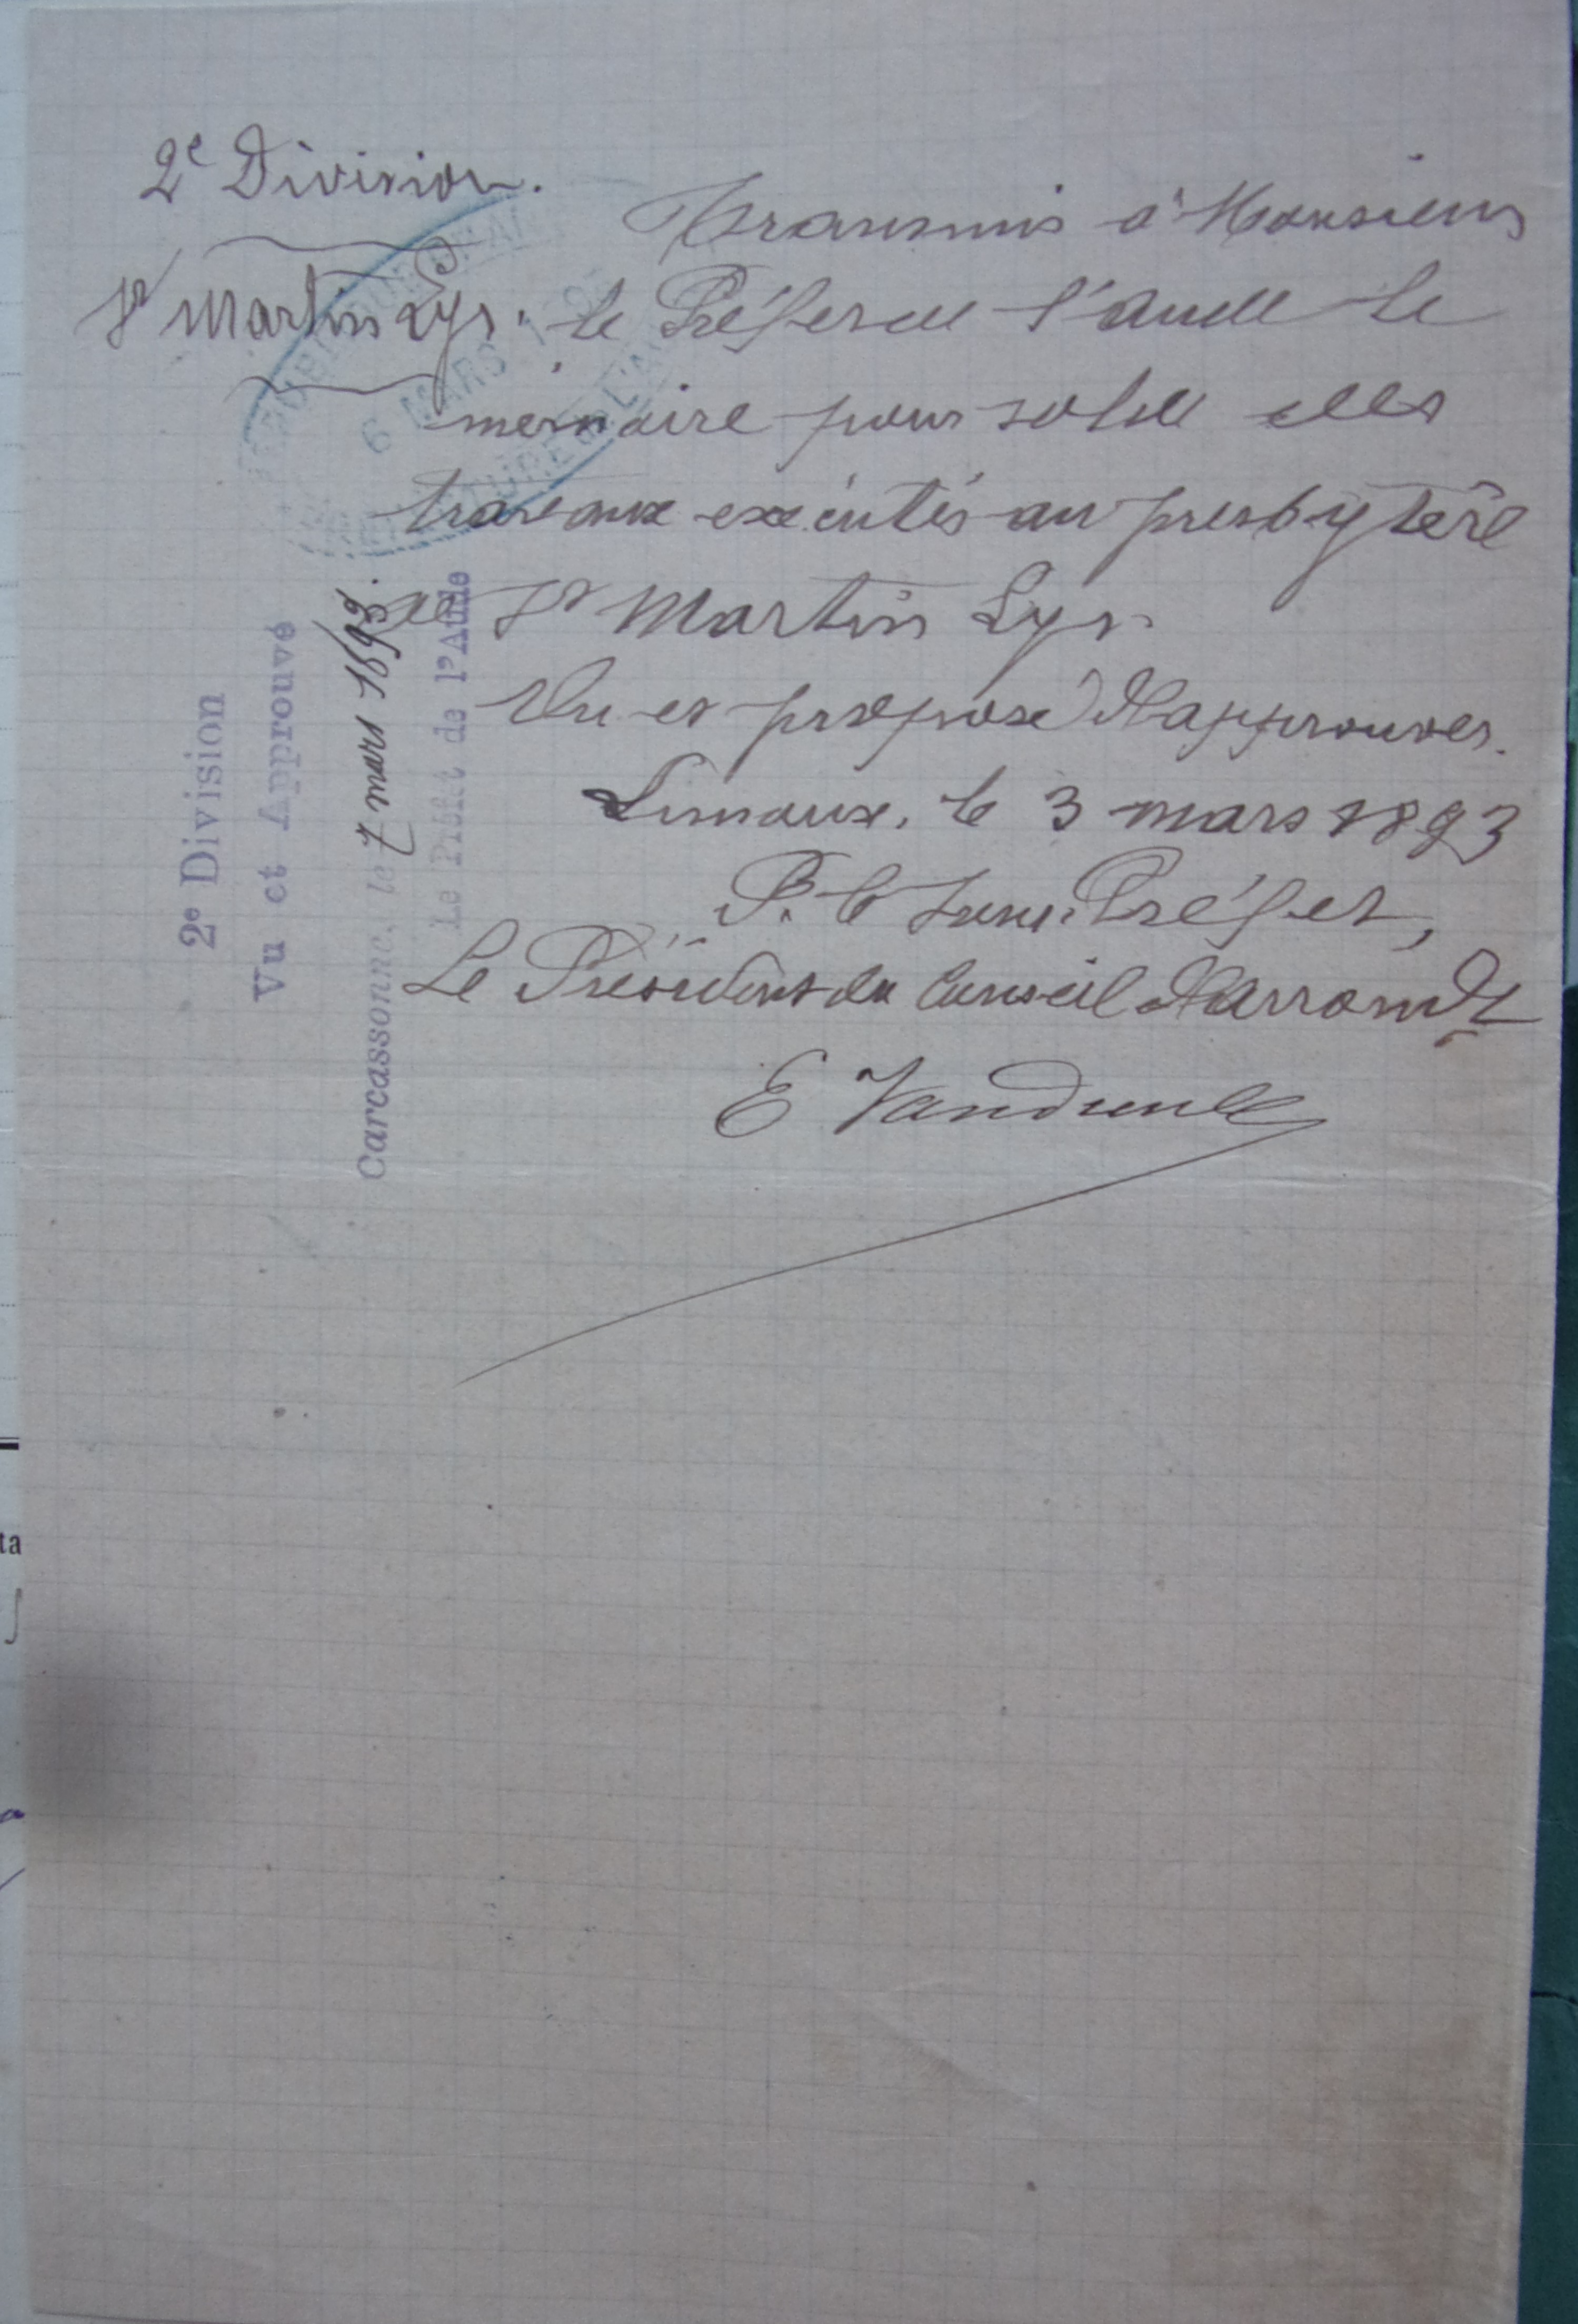 2e Division.
St Martin Lys.
Transmis à Monsieur
le Préfet de l'Aude le
mémoire pour solde des
travaux exécutés au presbytère
de St Martin Lys.
Vu et proposé d'approuver.
Limoux, le 3 mars 1893
P. le Sous-Préfet,
Le Président du Conseil d'Arrondt
E
6 MARS
2e Division
Vu et Approuvé
Carcassonne, le 7 mars 1893.
Le Préfet de l'Aude
ta